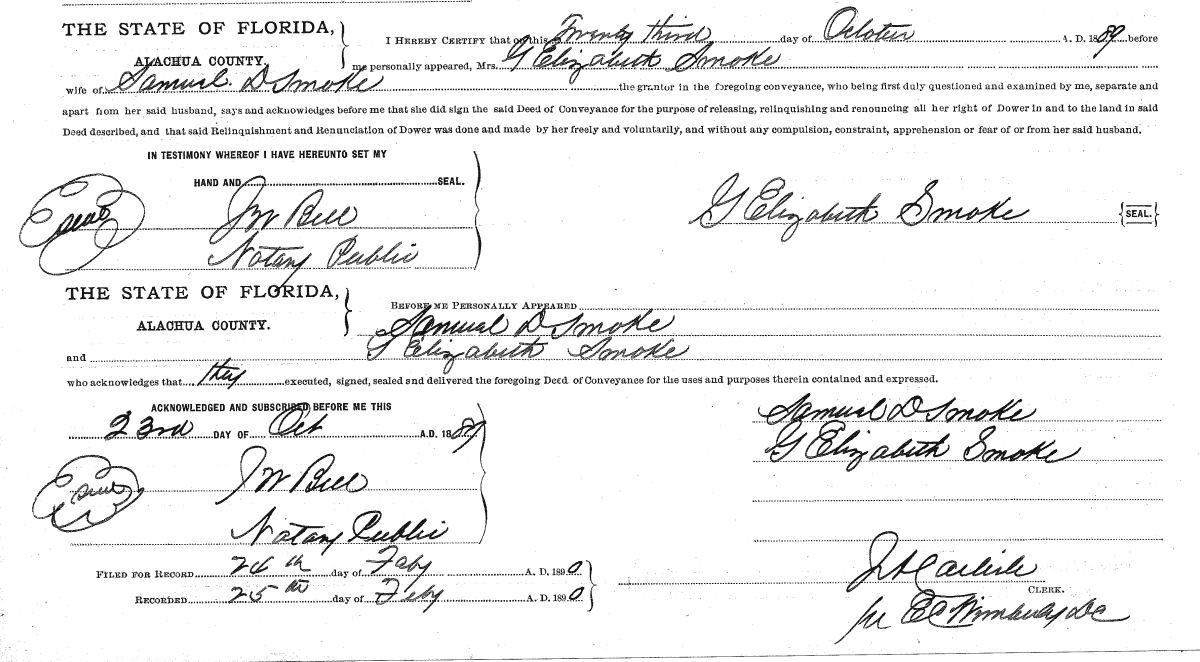 THE STATE OF FLORIDA,
ALACHUA COUNTY.
I HEREBY CERTIFY that on this Twenty third day of October A. D. 1889 before
me personally appeared, Mrs. G Elizabeth Smoke
wife of Samual D Smoke the grantor in the foregoing conveyance, who being first duly questioned and examined by me, separate and
apart from her said husband, says and acknowledges before me that she did sign the said Deed of Conveyance for the purpose of releasing, relinquishing and renouncing all her right of Dower in and to the land in said
Deed described, and that said Relinquishment and Renunciation of Dower was done and made by her freely and voluntarily, and without any compulsion, constraint, apprehension or fear of or from her said husband.
IN TESTIMONY WHEREOF I HAVE HEREUNTO SET MY
HAND AND SEAL.
seal J W Bell
Notary Public
G Elizabeth Smoke {SEAL.}
THE STATE OF FLORIDA,
ALACHUA COUNTY.
BEFORE ME PERSONALLY APPEARED
Samual D Smoke
and G Elizabeth Smoke
who acknowledges that they executed, signed, sealed and delivered the foregoing Deed of Conveyance for the uses and purposes therein contained and expressed.
ACKNOWLEDGED AND SUBSCRIBED BEFORE ME THIS
23rd DAY OF Oct A.D. 1889
seal J W Bell
Notary Public
Samual D Smoke
G Elizabeth Smoke
FILED FOR RECORD 24th day of Feby A. D. 1890
RECORDED 25th day of Feby A. D. 1890
J A Carlisle
CLERK.
per E C Wimberly DC